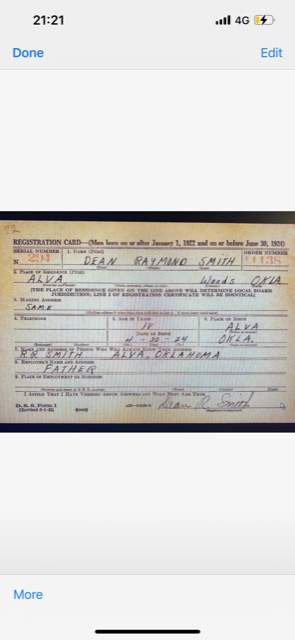 21:21 4G
Done Edit
REGISTRATION CARD—(Men born on or after January 1, 1922 and on or before June 30, 1924)
SERIAL NUMBER 1. NAME (Print) ORDER NUMBER
N DEAN RAYMOND SMITH 11138
2. PLACE OF RESIDENCE (Print)
ALVA Woods OKLA
(THE PLACE OF RESIDENCE GIVEN ON THE LINE ABOVE WILL DETERMINE LOCAL BOARD
JURISDICTION; LINE 2 OF REGISTRATION CERTIFICATE WILL BE IDENTICAL)
3. MAILING ADDRESS
SAME
4. TELEPHONE 5. AGE IN YEARS 6. PLACE OF BIRTH
ALVA
DATE OF BIRTH
24 OKLA.
7. NAME AND ADDRESS OF PERSON WHO WILL ALWAYS KNOW YOUR ADDRESS
SMITH ALVA, OKLAHOMA
8. EMPLOYER'S NAME AND ADDRESS
FATHER
9. PLACE OF EMPLOYMENT OR BUSINESS
I AFFIRM THAT I HAVE VERIFIED ABOVE ANSWERS AND THAT THEY ARE TRUE.
D. S. S. Form 1 Dean R. Smith
More